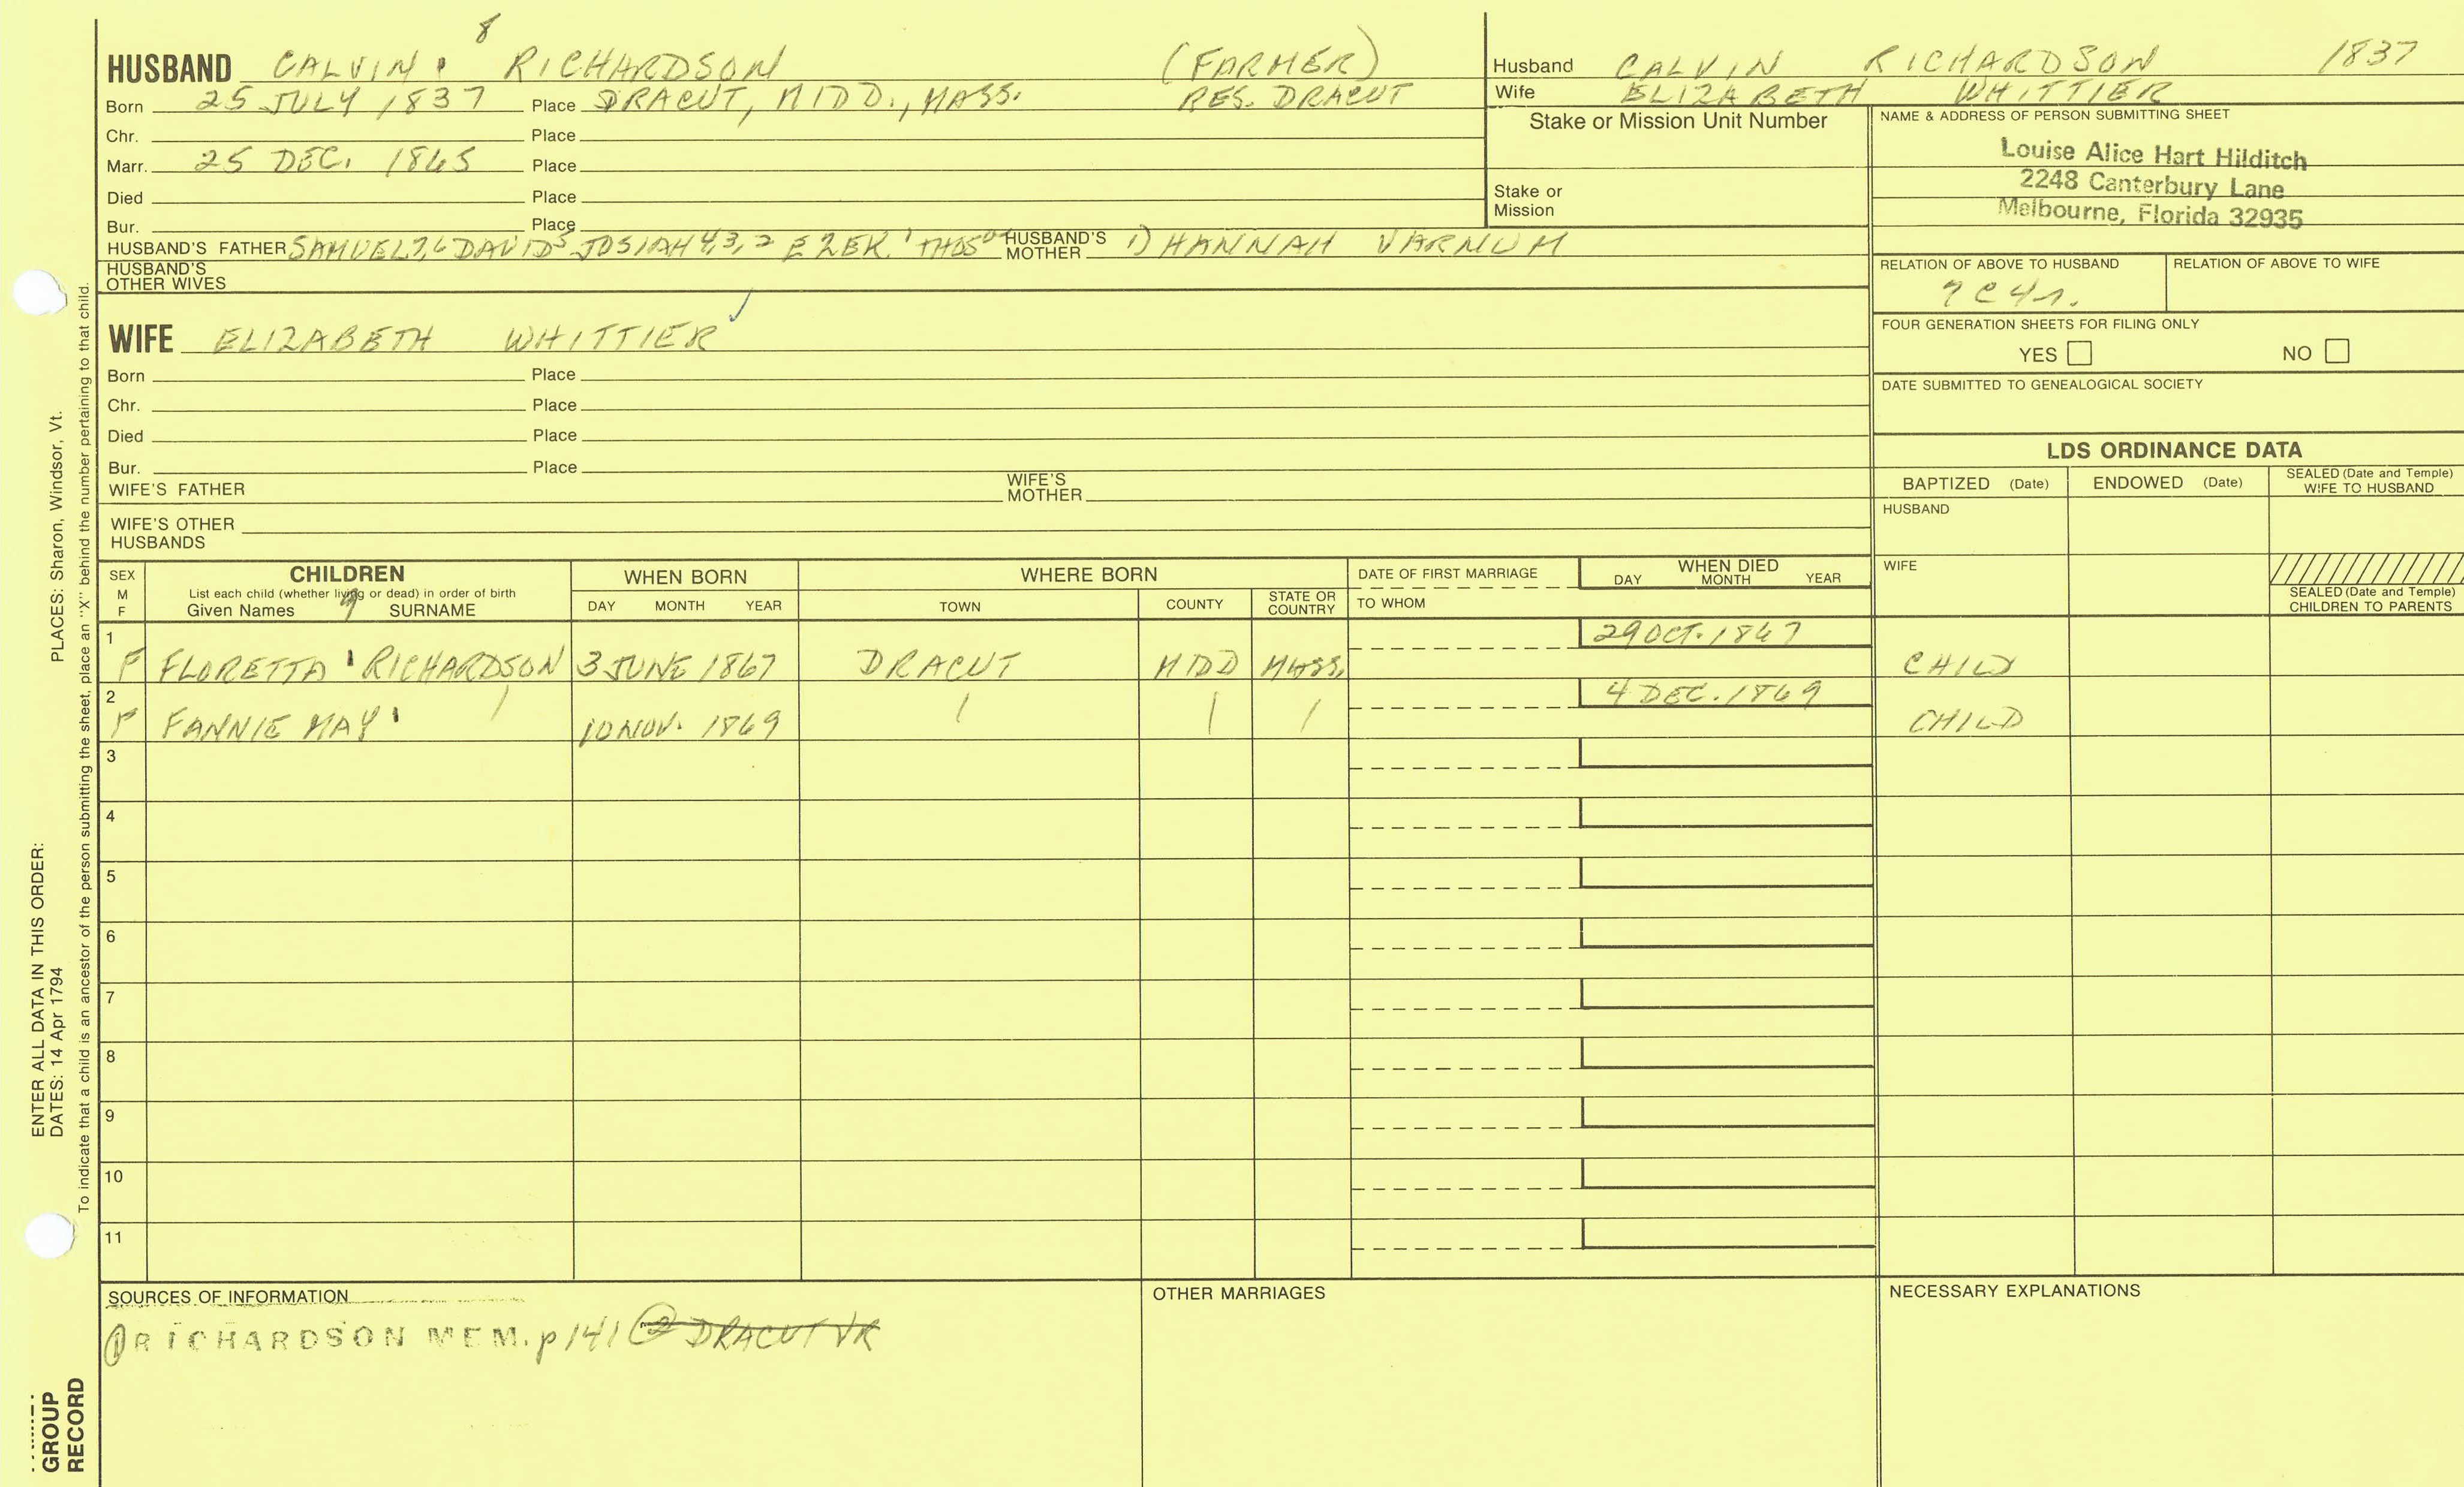 8
HUSBAND CALVIN RICHARDSON (FARMER)
Born 25 JULY 1837 Place DRACUT, MIDD., MASS. RES. DRACUT
Chr. Place
Marr. 25 DEC. 1865 Place
Died Place
Bur. Place
HUSBAND'S FATHER SAMUEL7,6 DAVID5 JOSIAH4,3,2 EZEK.1 THOS0 HUSBAND'S MOTHER 1) HANNAH VARNUM
HUSBAND'S OTHER WIVES
WIFE ELIZABETH WHITTIER ✓
Born Place
Chr. Place
Died Place
Bur. Place
WIFE'S FATHER WIFE'S MOTHER
WIFE'S OTHER HUSBANDS
Husband CALVIN RICHARDSON 1837
Wife ELIZABETH WHITTIER
Stake or Mission Unit Number
Stake or Mission
NAME & ADDRESS OF PERSON SUBMITTING SHEET
Louise Alice Hart Hilditch
2248 Canterbury Lane
Melbourne, Florida 32935
RELATION OF ABOVE TO HUSBAND RELATION OF ABOVE TO WIFE
7C4r.
FOUR GENERATION SHEETS FOR FILING ONLY
YES NO
DATE SUBMITTED TO GENEALOGICAL SOCIETY
LDS ORDINANCE DATA
BAPTIZED (Date) ENDOWED (Date) SEALED (Date and Temple) WIFE TO HUSBAND
HUSBAND
WIFE
SEALED (Date and Temple) CHILDREN TO PARENTS
SEX M F
CHILDREN
List each child (whether living or dead) in order of birth
Given Names 9 SURNAME
WHEN BORN
DAY MONTH YEAR
WHERE BORN
TOWN COUNTY STATE OR COUNTRY
DATE OF FIRST MARRIAGE
TO WHOM
WHEN DIED
DAY MONTH YEAR
1 F FLORETTA RICHARDSON 3 JUNE 1867 DRACUT MIDD MASS. 29 OCT. 1867 CHILD
2 F FANNIE MAY / 10 NOV. 1869 / / / 4 DEC. 1869 CHILD
3
4
5
6
7
8
9
10
11
SOURCES OF INFORMATION
① RICHARDSON MEM. p 141 ② DRACUT VR
OTHER MARRIAGES
NECESSARY EXPLANATIONS
ENTER ALL DATA IN THIS ORDER:
DATES: 14 Apr 1794 PLACES: Sharon, Windsor, Vt.
To indicate that a child is an ancestor of the person submitting the sheet, place an "X" behind the number pertaining to that child.
GROUP
RECORD